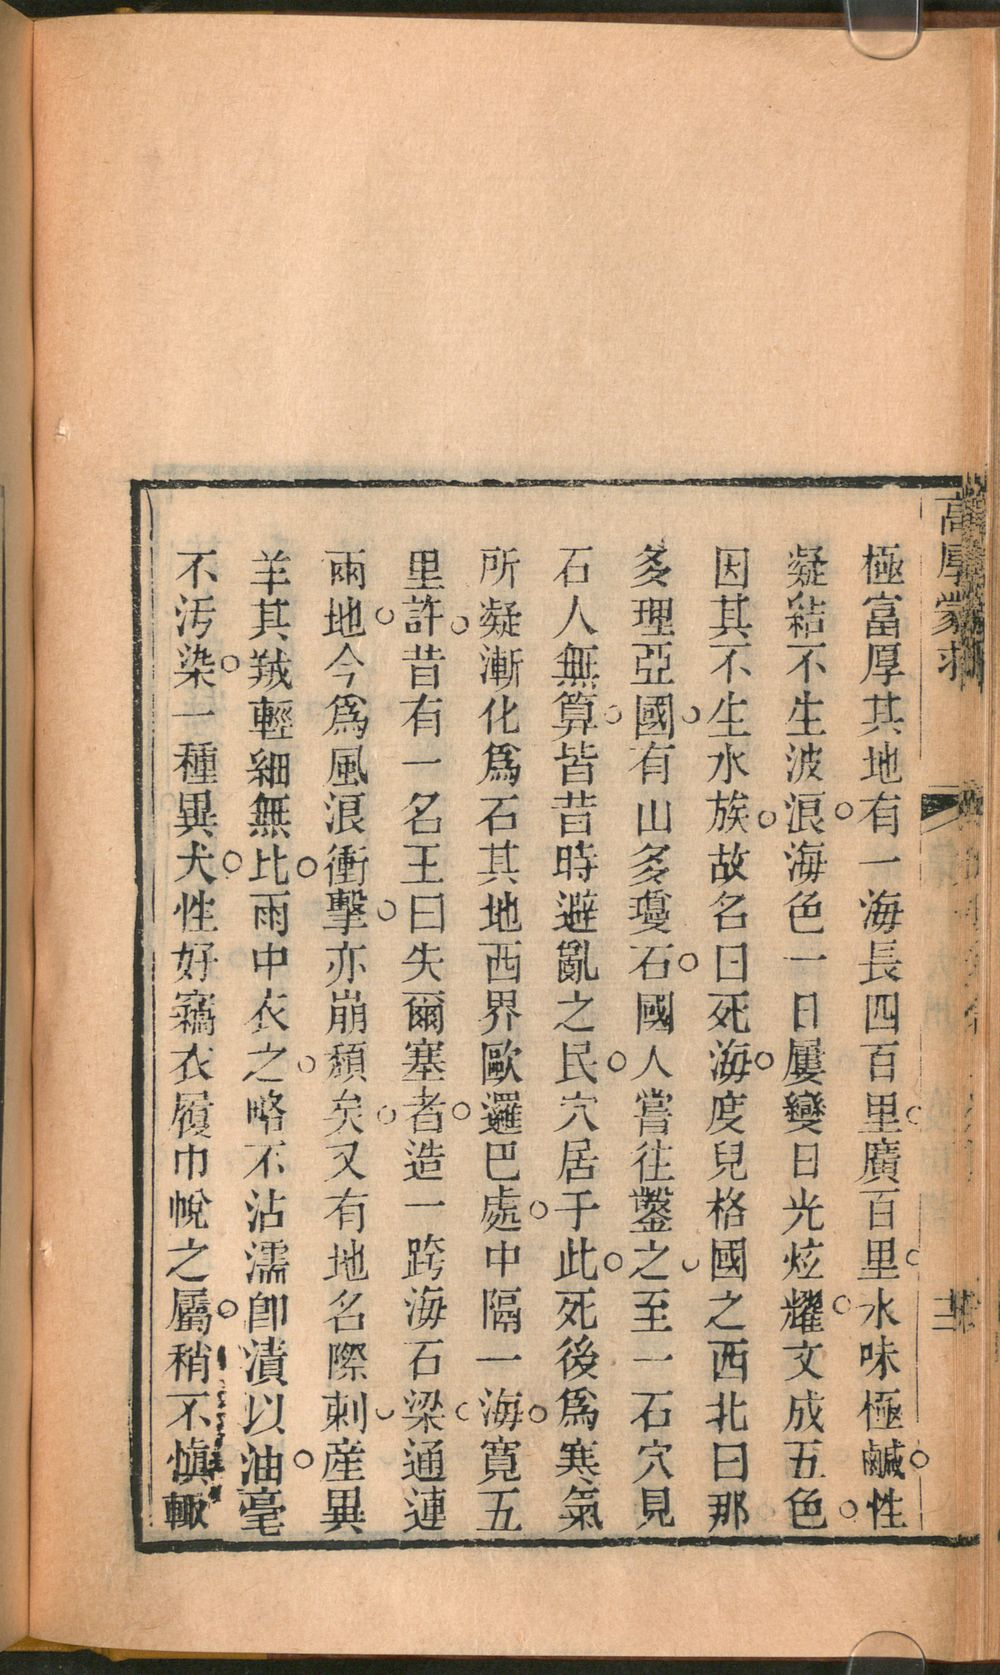 高厚蒙求
極富厚其地有一海長四百里廣百里水味極鹹性
凝結不生波浪海色一日屢變日光炫耀文成五色
因其不生水族故名曰死海度兒格國之西北曰那
多理亞國有山多瓊石國人嘗往鑿之至一石穴見
石人無算皆昔時避亂之民穴居于此死後爲寒氣
所凝漸化爲石其地西界歐邏巴處中隔一海寬五
里許昔有一名王曰失爾塞者造一跨海石梁通連
兩地今爲風浪衝擊亦崩頽矣又有地名際刺產異
羊其羢輕細無比雨中衣之略不沾濡卽漬以油毫
不汚染一種異犬性好竊衣履巾帨之屬稍不愼輙